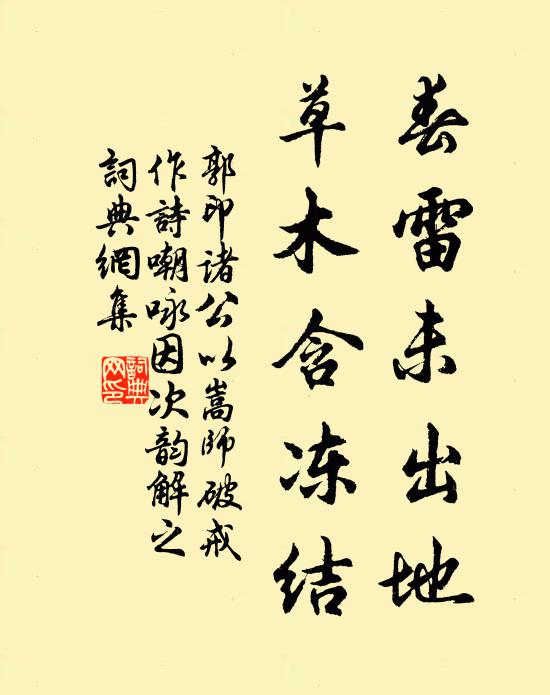 春雷未出地
草木含冻结
郭印诸公以嵩師破戒
作詩嘲咏因次韵解之
詞典網集
詞典網印